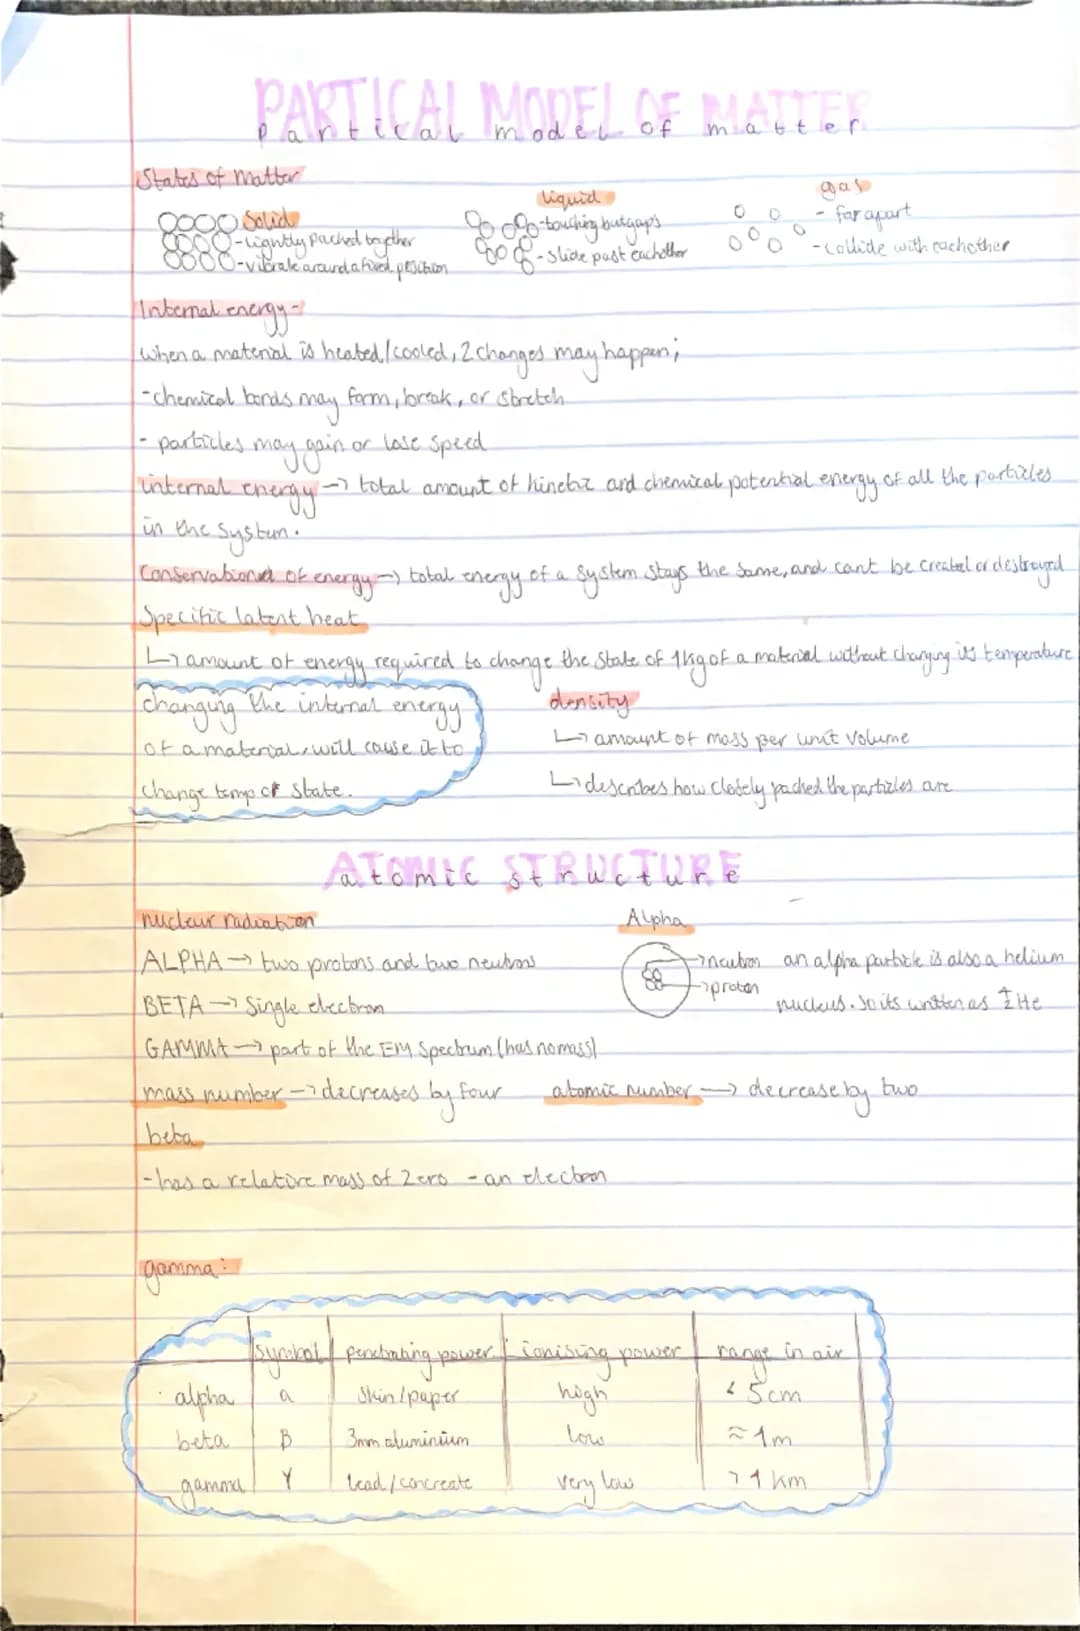 PARTICAL MODEL OF MATTER
Partical model of matter
States of Matter
Solid
-tightly packed together
-vibrate around a fixed position
liquid
-touching but gaps
-slide past eachother
gas
- far apart
-collide with eachother
Internal energy-
when a material is heated/cooled, 2 changes may happen;
-chemical bonds may form, break, or stretch
- particles may gain or lose speed
internal energy → total amount of kinetic and chemical potential energy of all the particles
in the system.
Conservation of energy → total energy of a system stays the same, and cant be created or destroyed
Specific latent heat
↳ amount of energy required to change the state of 1kg of a material without changing its temperature
changing the internal energy
of a material, will cause it to
change temp or state.
density
↳ amount of mass per unit volume
↳ describes how closely packed the particles are
ATOMIC STRUCTURE
atomic structure
nuclear radiation
ALPHA → two protons and two neutrons
BETA → Single electron
GAMMA → part of the EM Spectrum (has no mass)
Alpha
→neutron
→proton
an alpha particle is also a helium
nucleus. So its written as 4/2 He
mass number → decreases by four atomic number → decrease by two
beta
-has a relative mass of zero - an electron
gamma:
symbol penetrating power ionising power range in air
alpha a Skin/paper high < 5cm
beta B 3mm aluminium low ≈ 1m
gamma Y lead/concreate very low > 1 km